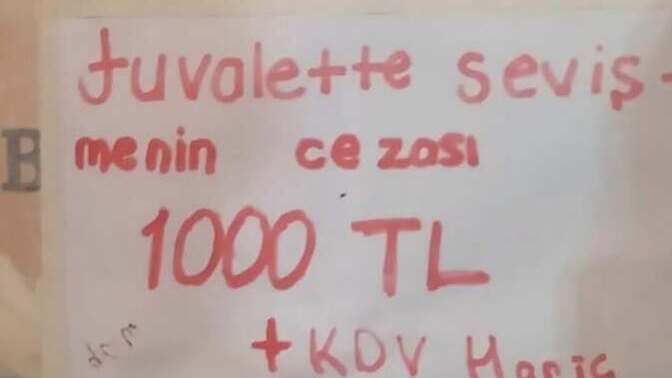 B
tuvalette seviş-
menin cezası
1000 TL
+ KDV Hariç